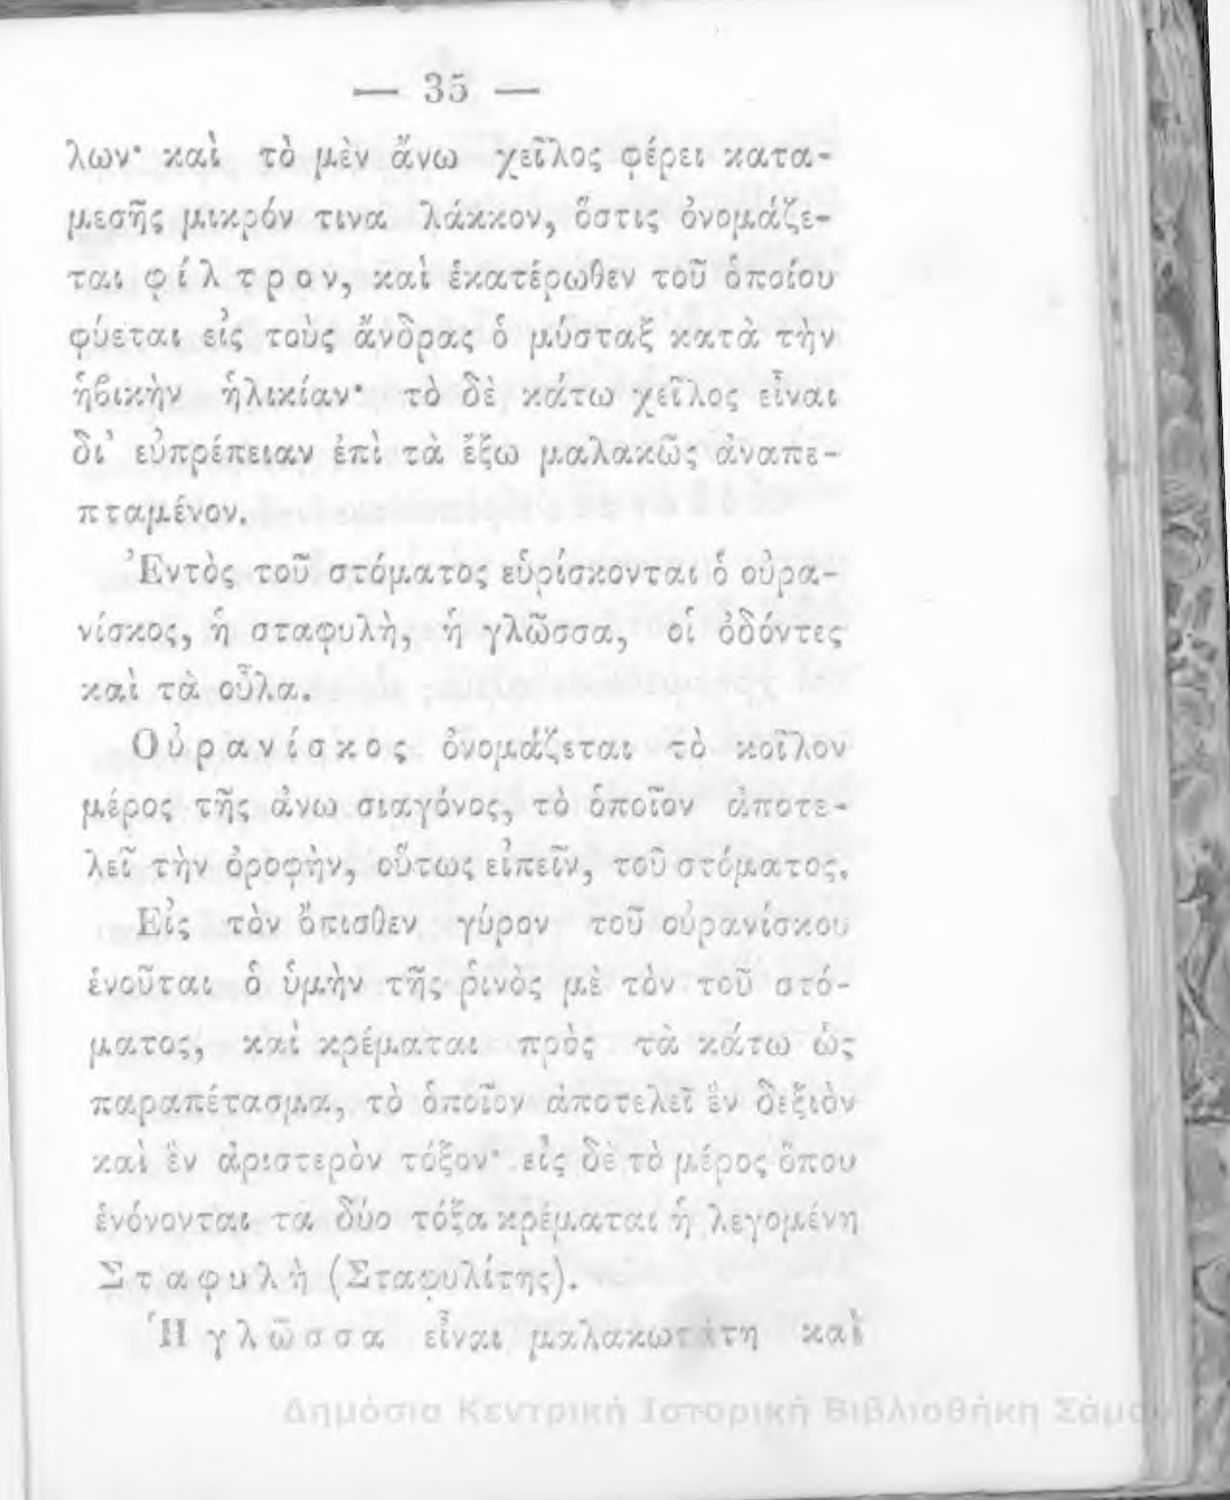 — 35 —
λων· καὶ τὸ μὲν ἄνω χεῖλος φέρει κατα-
μεσῆς μικρόν τινα λάκκον, ὅστις ὀνομάζε-
ται φίλτρον, καὶ ἑκατέρωθεν τοῦ ὁποίου
φύεται εἰς τοὺς ἄνδρας ὁ μύσταξ κατὰ τὴν
ἡβικὴν ἡλικίαν· τὸ δὲ κάτω χεῖλος εἶναι
δι' εὐπρέπειαν ἐπὶ τὰ ἔξω μαλακῶς ἀναπε-
πταμένον.
Ἐντὸς τοῦ στόματος εὑρίσκονται ὁ οὐρα-
νίσκος, ἡ σταφυλὴ, ἡ γλῶσσα, οἱ ὀδόντες
καὶ τὰ οὖλα.
Οὐρανίσκος ὀνομάζεται τὸ κοῖλον
μέρος τῆς ἄνω σιαγόνος, τὸ ὁποῖον ἀποτε-
λεῖ τὴν ὀροφὴν, οὕτως εἰπεῖν, τοῦ στόματος.
Εἰς τὸν ὄπισθεν γύρον τοῦ οὐρανίσκου
ἑνοῦται ὁ ὑμὴν τῆς ῥινὸς μὲ τὸν τοῦ στό-
ματος, καὶ κρέμαται πρὸς τὰ κάτω ὡς
παραπέτασμα, τὸ ὁποῖον ἀποτελεῖ ἓν δεξιὸν
καὶ ἓν ἀριστερὸν τόξον· εἰς δὲ τὸ μέρος ὅπου
ἑνόνονται τα δύο τόξα κρέμαται ἡ λεγομένη
Σταφυλὴ (Σταφυλίτης).
Ἡ γλῶσσα εἶναι μαλακωτάτη καὶ
Δημόσια Κεντρική Ιστορική Βιβλιοθήκη Σάμου